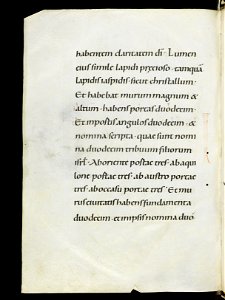 habentem claritatem di · Lumen
eius simile lapidi prętioso · tamquā
lapidis iaspidis · sicut christallum ·
Et habebat murum magnum &
altum · habens portas duodecim ·
Et in portis anglos duodecim · &
nomina scripta · quae sunt nomi
na duodecim tribuum filiorum
isrl · Ab oriente portae tres · ab aqui
lone portae tres · ab austro portae
tres · ab occasu portae tres · Et mu
rus ciuitatis habens fundamenta
duodecim · et in ipsis nomina duo